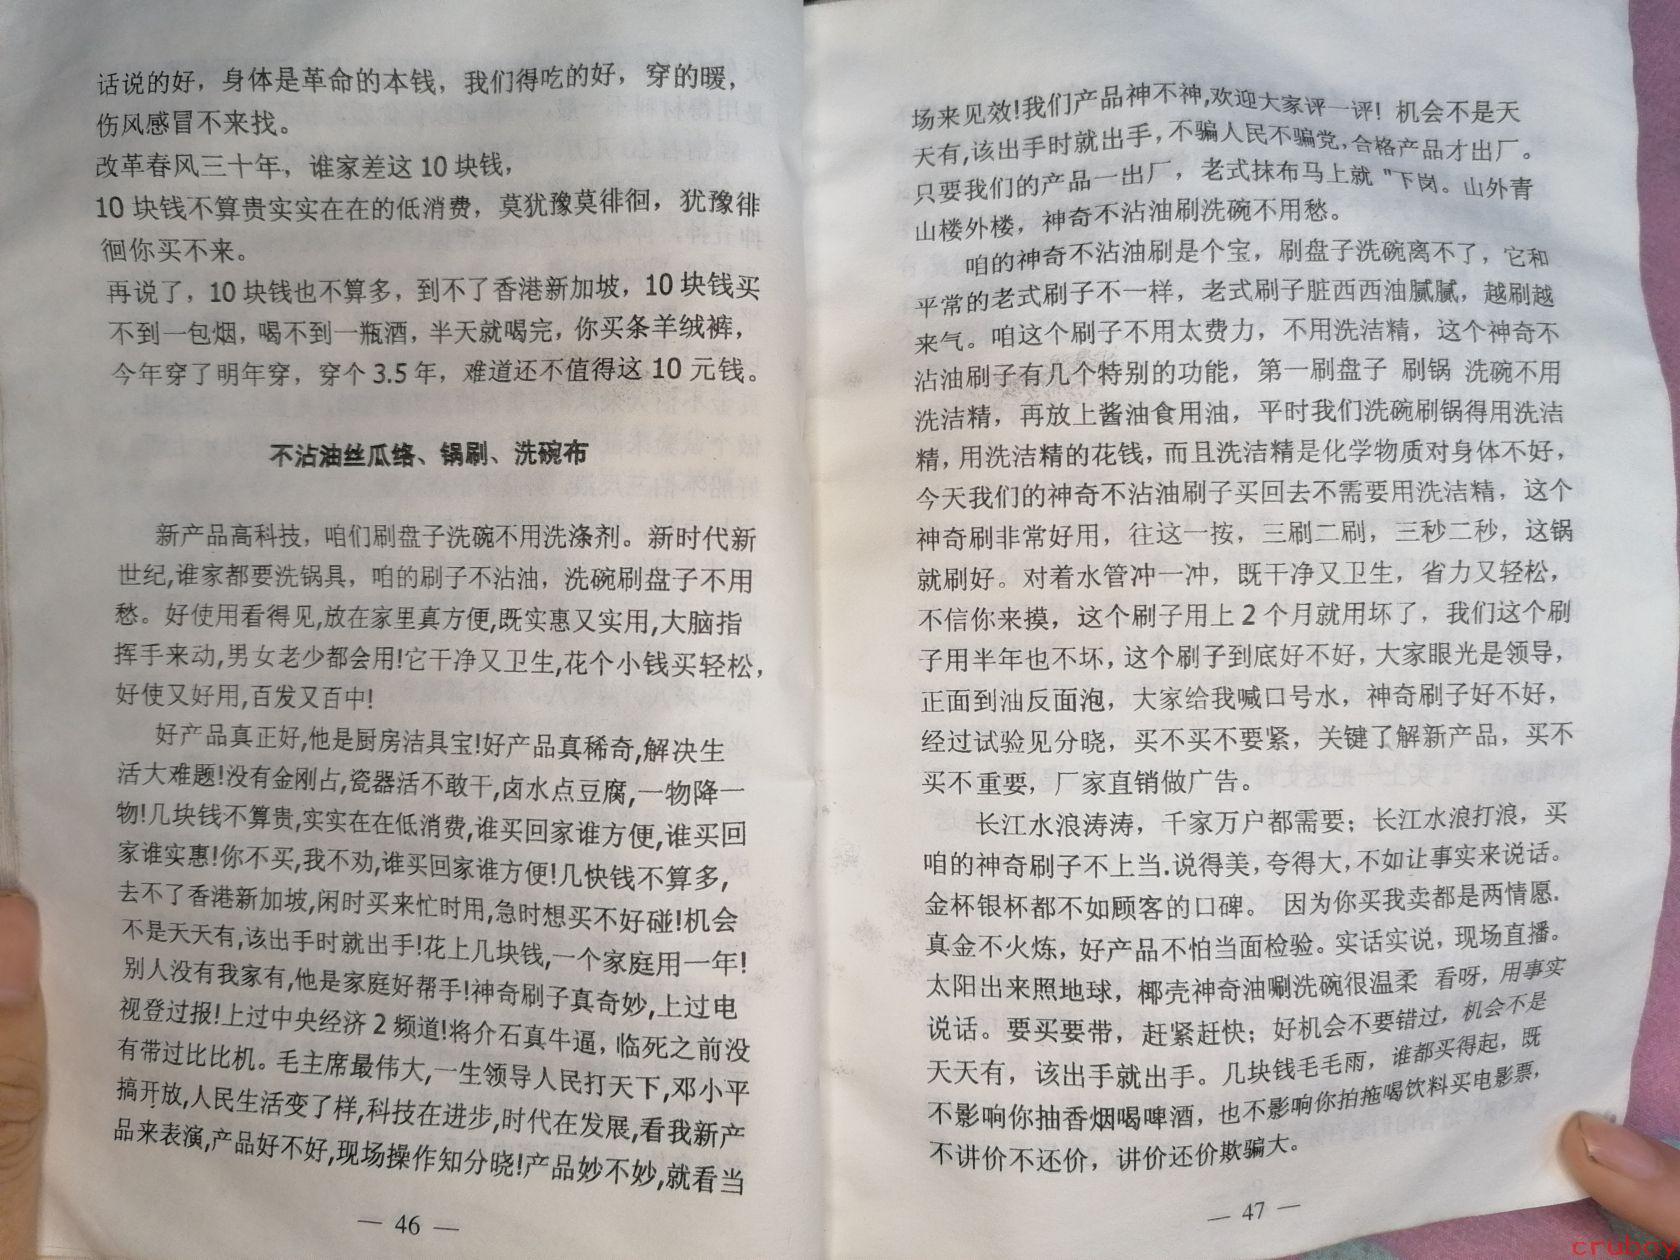 话说的好，身体是革命的本钱，我们得吃的好，穿的暖，
伤风感冒不来找。
改革春风三十年，谁家差这 10 块钱，
10 块钱不算贵实实在在的低消费，莫犹豫莫徘徊，犹豫徘
徊你买不来。
再说了，10 块钱也不算多，到不了香港新加坡，10 块钱买
不到一包烟，喝不到一瓶酒，半天就喝完，你买条羊绒裤，
今年穿了明年穿，穿个 3.5 年，难道还不值得这 10 元钱。
不沾油丝瓜络、锅刷、洗碗布
新产品高科技，咱们刷盘子洗碗不用洗涤剂。新时代新
世纪,谁家都要洗锅具，咱的刷子不沾油，洗碗刷盘子不用
愁。好使用看得见,放在家里真方便,既实惠又实用,大脑指
挥手来动,男女老少都会用!它干净又卫生,花个小钱买轻松,
好使又好用,百发又百中!
好产品真正好,他是厨房洁具宝!好产品真稀奇,解决生
活大难题!没有金刚占,瓷器活不敢干,卤水点豆腐,一物降一
物!几块钱不算贵,实实在在低消费,谁买回家谁方便,谁买回
家谁实惠!你不买,我不劝,谁买回家谁方便!几快钱不算多,
去不了香港新加坡,闲时买来忙时用,急时想买不好碰!机会
不是天天有,该出手时就出手!花上几块钱,一个家庭用一年!
别人没有我家有,他是家庭好帮手!神奇刷子真奇妙,上过电
视登过报!上过中央经济 2 频道!将介石真牛逼，临死之前没
有带过比比机。毛主席最伟大,一生领导人民打天下,邓小平
搞开放,人民生活变了样,科技在进步,时代在发展,看我新产
品来表演,产品好不好,现场操作知分晓!产品妙不妙,就看当
— 46 —
场来见效!我们产品神不神,欢迎大家评一评! 机会不是天
天有,该出手时就出手，不骗人民不骗党,合格产品才出厂。
只要我们的产品一出厂，老式抹布马上就 "下岗。山外青
山楼外楼，神奇不沾油刷洗碗不用愁。
咱的神奇不沾油刷是个宝，刷盘子洗碗离不了，它和
平常的老式刷子不一样，老式刷子脏西西油腻腻，越刷越
来气。咱这个刷子不用太费力，不用洗洁精，这个神奇不
沾油刷子有几个特别的功能，第一刷盘子 刷锅 洗碗不用
洗洁精，再放上酱油食用油，平时我们洗碗刷锅得用洗洁
精，用洗洁精的花钱，而且洗洁精是化学物质对身体不好，
今天我们的神奇不沾油刷子买回去不需要用洗洁精，这个
神奇刷非常好用，往这一按，三刷二刷，三秒二秒，这锅
就刷好。对着水管冲一冲，既干净又卫生，省力又轻松，
不信你来摸，这个刷子用上 2 个月就用坏了，我们这个刷
子用半年也不坏，这个刷子到底好不好，大家眼光是领导，
正面到油反面泡，大家给我喊口号水，神奇刷子好不好，
经过试验见分晓，买不买不要紧，关键了解新产品，买不
买不重要，厂家直销做广告。
长江水浪涛涛，千家万户都需要；长江水浪打浪，买
咱的神奇刷子不上当.说得美，夸得大，不如让事实来说话。
金杯银杯都不如顾客的口碑。 因为你买我卖都是两情愿.
真金不火炼，好产品不怕当面检验。实话实说，现场直播。
太阳出来照地球，椰壳神奇油唰洗碗很温柔 看呀，用事实
说话。要买要带，赶紧赶快；好机会不要错过，机会不是
天天有，该出手就出手。几块钱毛毛雨，谁都买得起，既
不影响你抽香烟喝啤酒，也不影响你拍拖喝饮料买电影票，
不讲价不还价，讲价还价欺骗大。
— 47 —
cruboy